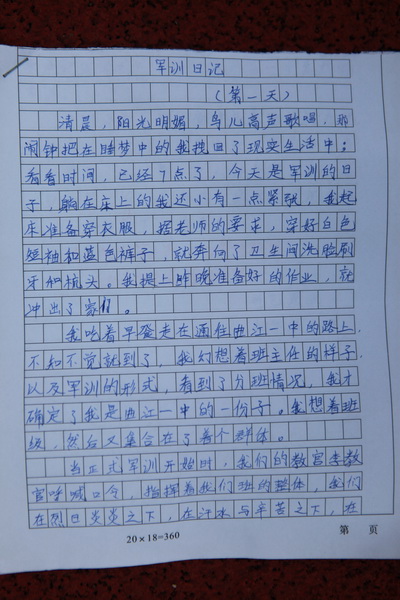 军训日记
（第一天）
清晨，阳光明媚，鸟儿高声歌唱，那
闹钟把在睡梦中的我拽回了现实生活中；
看看时间，已经7点了，今天是军训的日
子，躺在床上的我还小有一点紧张，我起
床准备穿衣服，据老师的要求，穿好白色
短袖和蓝色裤子，就奔向了卫生间洗脸刷
牙和梳头。我提上昨晚准备好的作业，就
冲出了家门。
我吃着早餐走在通往曲江一中的路上，
不知不觉就到了，我幻想着班主任的样子，
以及军训的形式，看到了分班情况，我才
确定了我是曲江一中的一份子。我想着班
级，然后又集合在了看个群体。
当正式军训开始时，我们的教官李教
官呼喊口令，指挥着我们班的整体，我们
在烈日炎炎之下，在汗水与辛苦之下，在
20×18=360
第 页